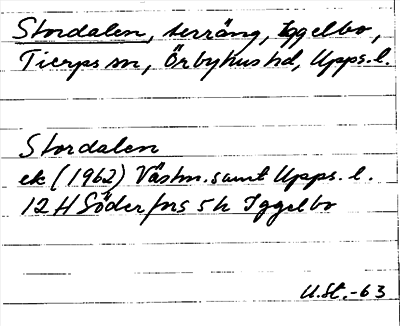 Stordalen, terräng, Iggelbo,
Tierps sn, Örbyhus hd, Upps. l.
Stordalen
ek (1962) Västm. samt Upps. l.
12 H Söderfors 5 h Iggelbo
U.St.-63